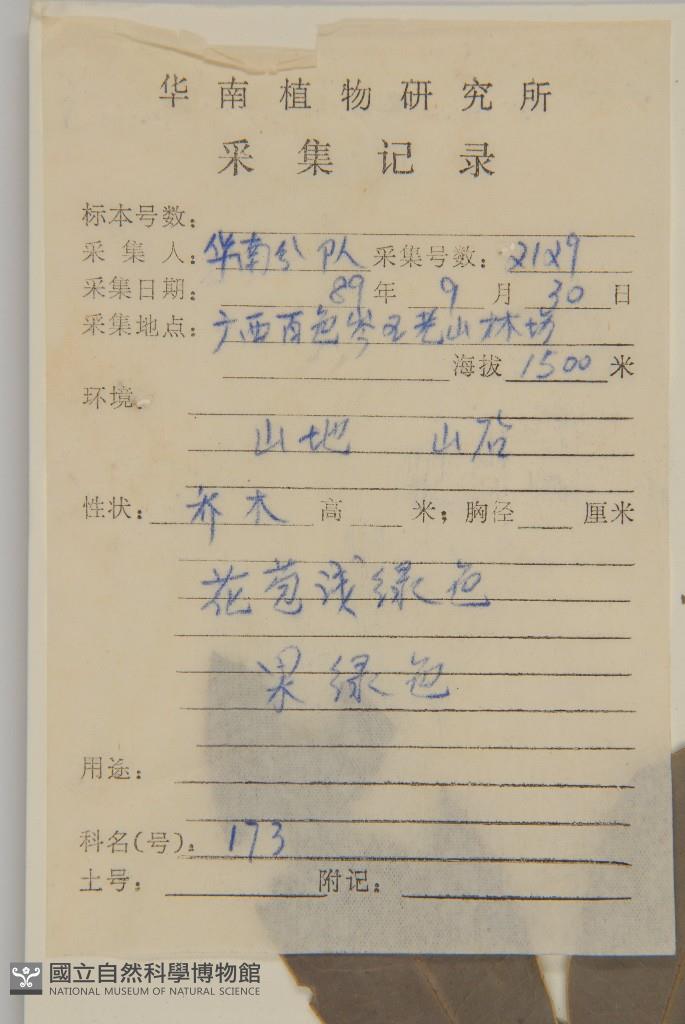 华南植物研究所
采集记录
标本号数：
采集人：华南分队 采集号数：2129
采集日期： 89年 9月 30日
采集地点：广西百色岑王老山林场
海拔 1500 米
环境：
山地 山谷
性状：乔木 高 米；胸径 厘米
花苞浅绿色
果绿色
用途：
科名(号)：173
土号： 附记：
國立自然科學博物館
NATIONAL MUSEUM OF NATURAL SCIENCE